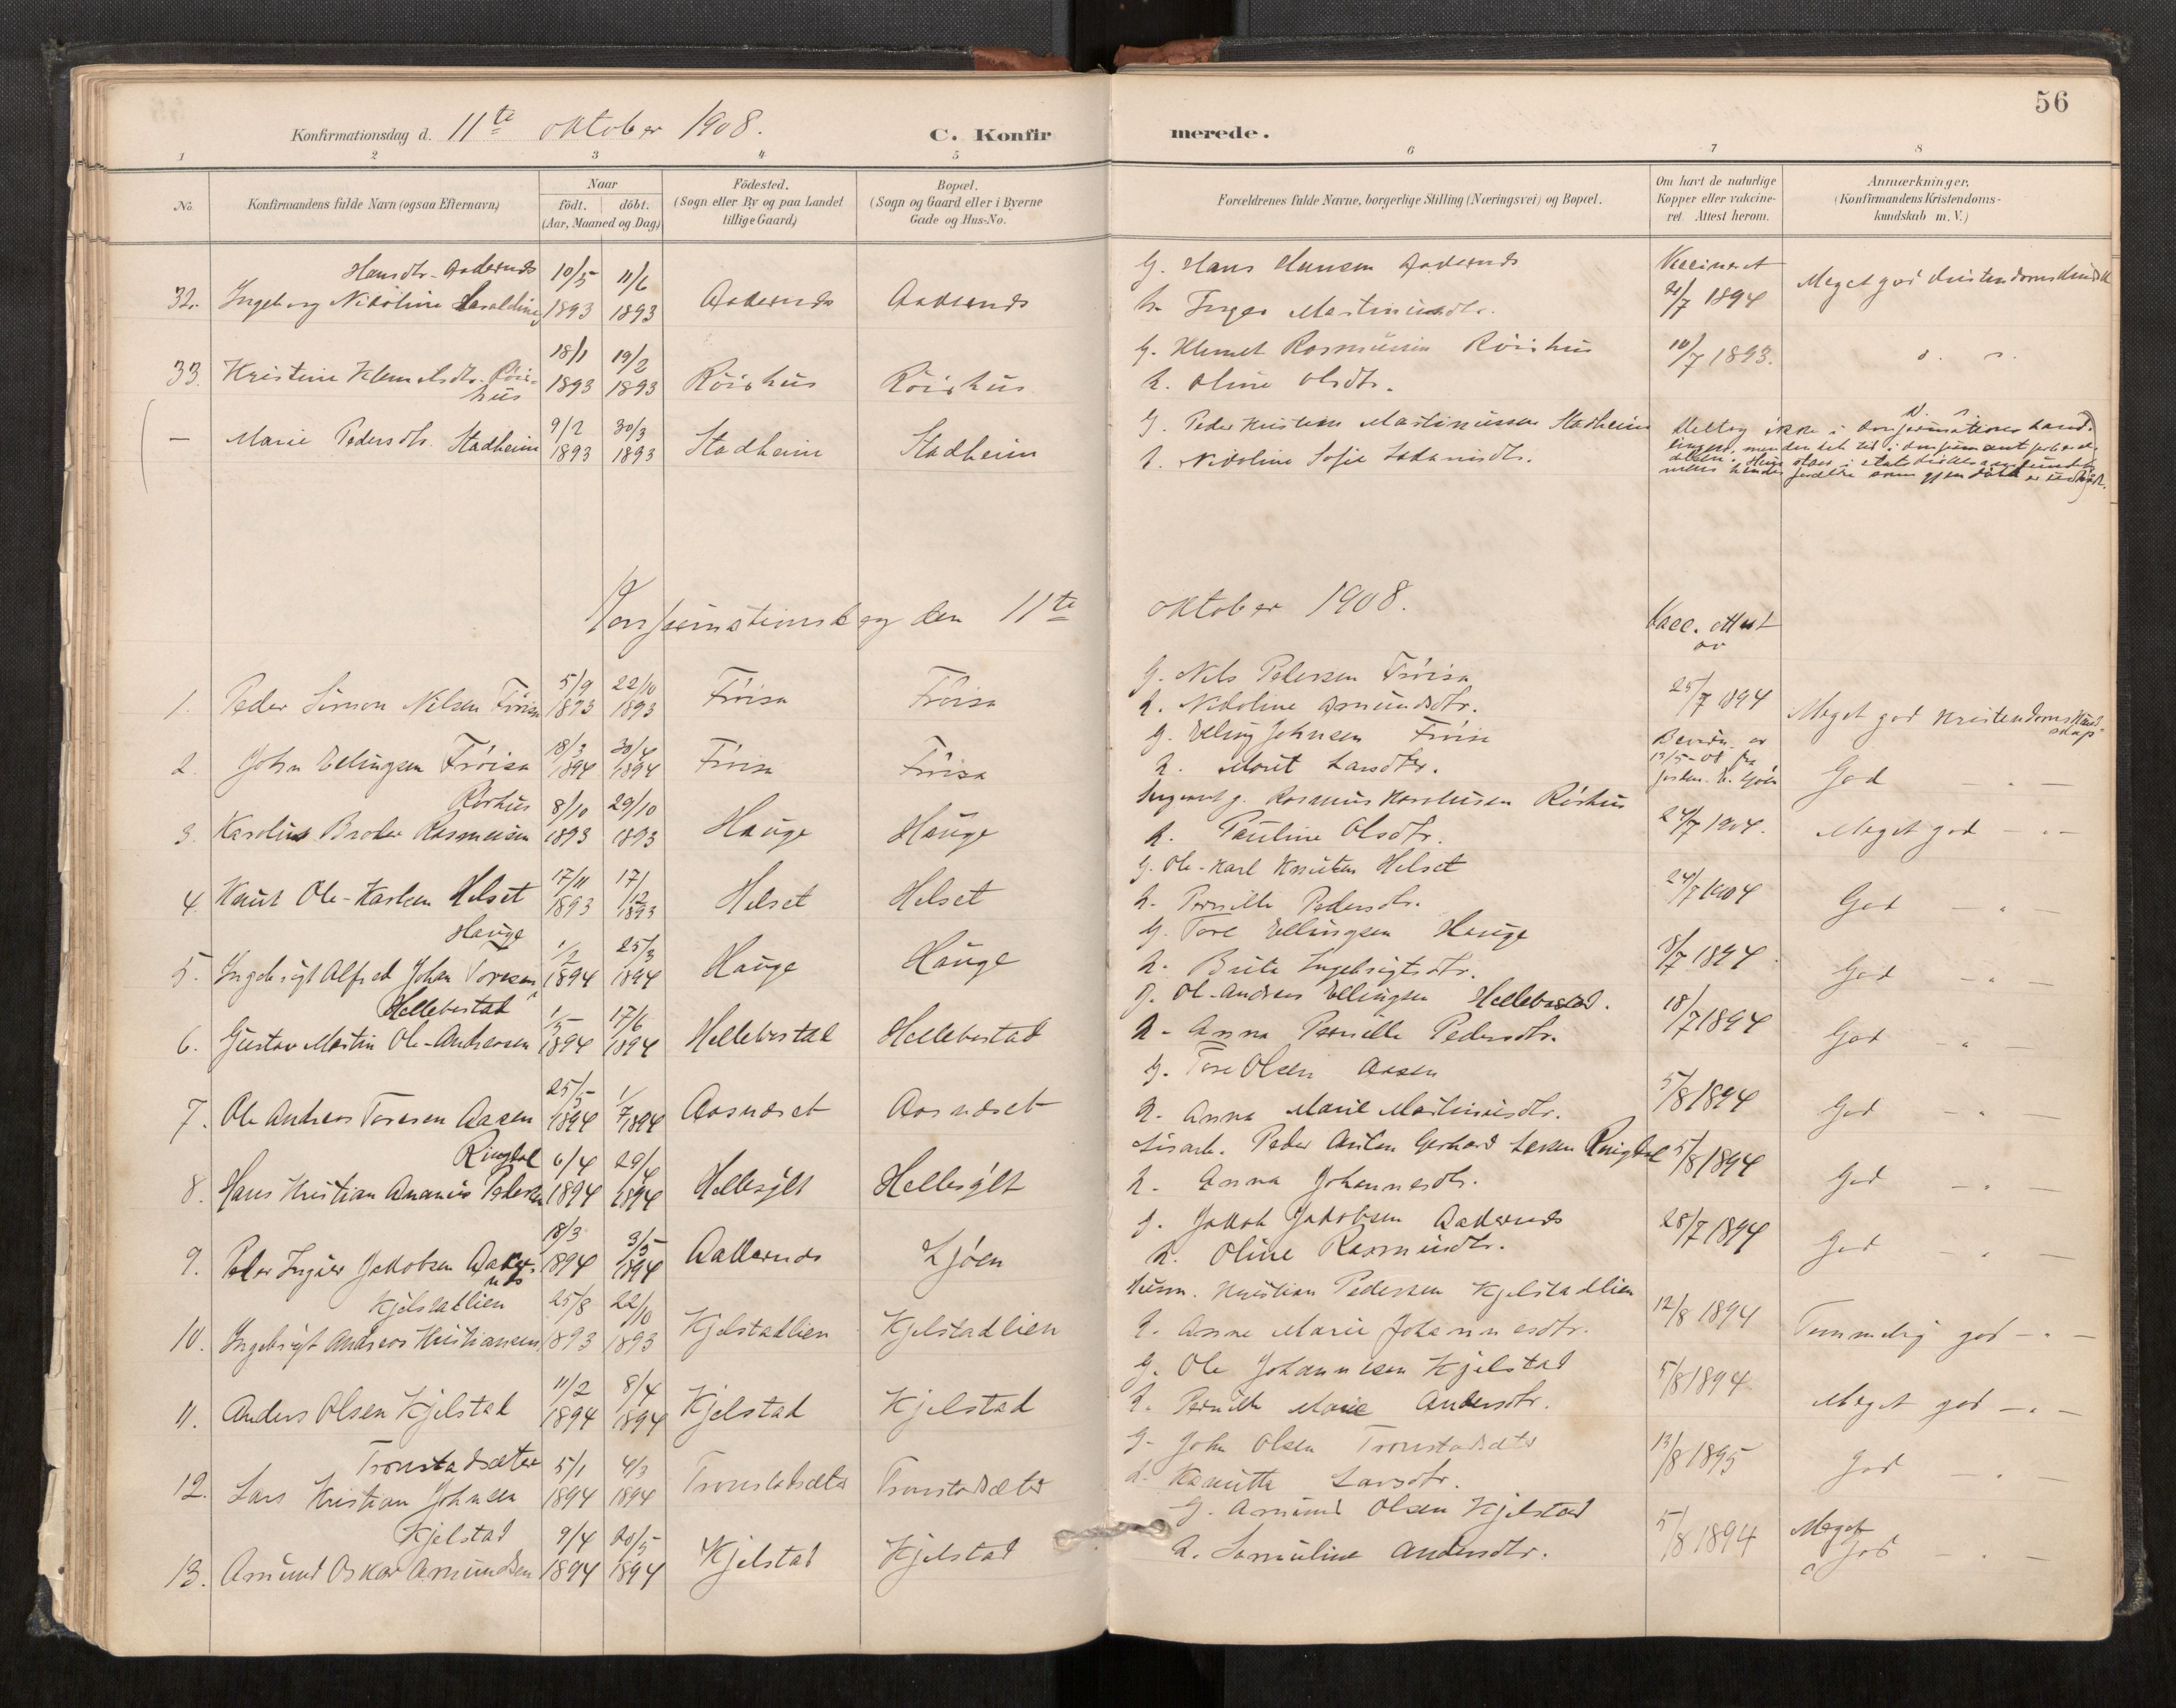 56
Konfirmationsdag d. 11te oktober 1908. C. Konfirmerede.
1 2 3 4 5 6 7 8
No.
Konfirmandens fulde Navn (ogsaa Efternavn)
Naar
født. døbt.
(Aar, Maaned og Dag)
Födested.
(Sogn eller By og paa Landet
tillige Gaard)
Bopæl.
(Sogn og Gaard eller i Byerne
Gade og Hus-No.
Forældrenes fulde Navne, borgerlige Stilling (Næringsvei) og Bopæl.
Om havt de naturlige
Kopper eller vakcine-
ret Attest herom.
Anmærkninger.
(Konfirmandens Kristendoms-
kundskab m. V.)
Hansdtr. Aakernæs 10/5 11/6 G. Hans Hansen Aakernæs Vaccineret
32. Ingeborg Nikoline 1893 1893 Aakernæs Aakernæs h. Inger Martinusdtr. /7 1894 Meget god
18/1 19/2 G. Klemet Rasmussen Röirhus 10/7 1893.
33. Kristine Klemetsdtr. Röir- 1893 1893 Röirhus Röirhus h. Oline Olsdtr.
hus
9/2 30/3 G. Peder Kristian Martinussen Stadheim Deltog ikke i konfirmations
— Marie Pedersdtr. Stadheim 1893 1893 Stadheim Stadheim h. Nikoline Sofie
Konfirmationsdag den 11te oktober 1908.
Vacc. attest
av
5/9 22/10 G. Nils Petersen Fröisa 25/7 1894
1. Peder Simon Nilsen Fröisa 1893 1893 Fröisa Fröisa h. Nikoline Amundsdtr. Meget god Kristendomskund
skap
18/3 30/4 G. Elling Johnsen Fröisa
2. John Ellingsen Fröisa 1894 1894 Fröisa Fröisa h. Marit Larsdtr. God — " —
Rörhus 8/10 29/10 Rasmus Karolusen Rörhus 24/7 1904.
3. Karolus Broder Rasmussen 1893 1893 Hauge Hauge h. Pauline Olsdtr. Meget god — " —
17/11 17/12 G. Ole-Karl Knutsen Helset 24/7 1904
4. Knut Ole-Karlsen Helset 1893 1893 Helset Helset h. Pernille Pedersdtr. God — " —
Hauge 1/2 25/3 G. Tore Ellingsen Hauge 8/7 1894
5. Ingebrigt Alfred Johan Toresen 1894 1894 Hauge Hauge h. Brite Ingebrigtsdtr. God — " —
Hellebostad 1/5 17/6 G. Ole-Andreas Ellingsen Hellebostad. 18/7 1894
6. Gustav Martin Ole-Andreasen 1894 1894 Hellebostad Hellebostad h. Anna Pernille Pedersdtr. God — " —
25/5 1/7 G. Tore Olsen Aasen 5/8 1894
7. Ole Andreas Toresen Aasen 1894 1894 Aasnæset Aasnæset h. Anna Marie Martinusdtr. God — " —
Ringdal 6/4 29/4 Peder Anton Gerhard Larsen Ringdal 5/8 1894
8. Hans Kristian Ananias Pedersen 1894 1894 Hellesylt Hellesylt h. Anna Johannesdtr. God — " —
18/3 3/5 G. Jakob Jakobsen Aakernæs 28/7 1894
9. Peder Ingvar Jakobsen Aaker- 1894 1894 Aakernæs Ljöen h. Oline Rasmusdtr. God " —
næs
Kjelstadlien 25/8 22/10 Husm. Kristian Pedersen Kjelstadlien 12/8 1894
10. Ingebrigt Andreas Kristiansen 1893 1893 Kjelstadlien Kjelstadlien h. Anne Marie Johannesdtr. Temmelig god — " —
11/2 8/4 G. Ole Johannesen Kjelstad 5/8 1894
11. Anders Olsen Kjelstad 1894 1894 Kjelstad Kjelstad h. Pernille Marie Andersdtr. Meget god — " —
Tronstadsæter 5/1 4/3 G. John Olsen Tronstadsæter 13/8 1895
12. Lars Kristian Johnsen 1894 1894 Tronstadsæter Tronstadsæter h. Larsdtr. God " —
Kjelstad 9/4 20/5 G. Amund Olsen Kjelstad 5/8 1894 Meget
13. Amund Oskar Amundsen 1894 1894 Kjelstad Kjelstad h. Samuline Andersdtr. god — " —